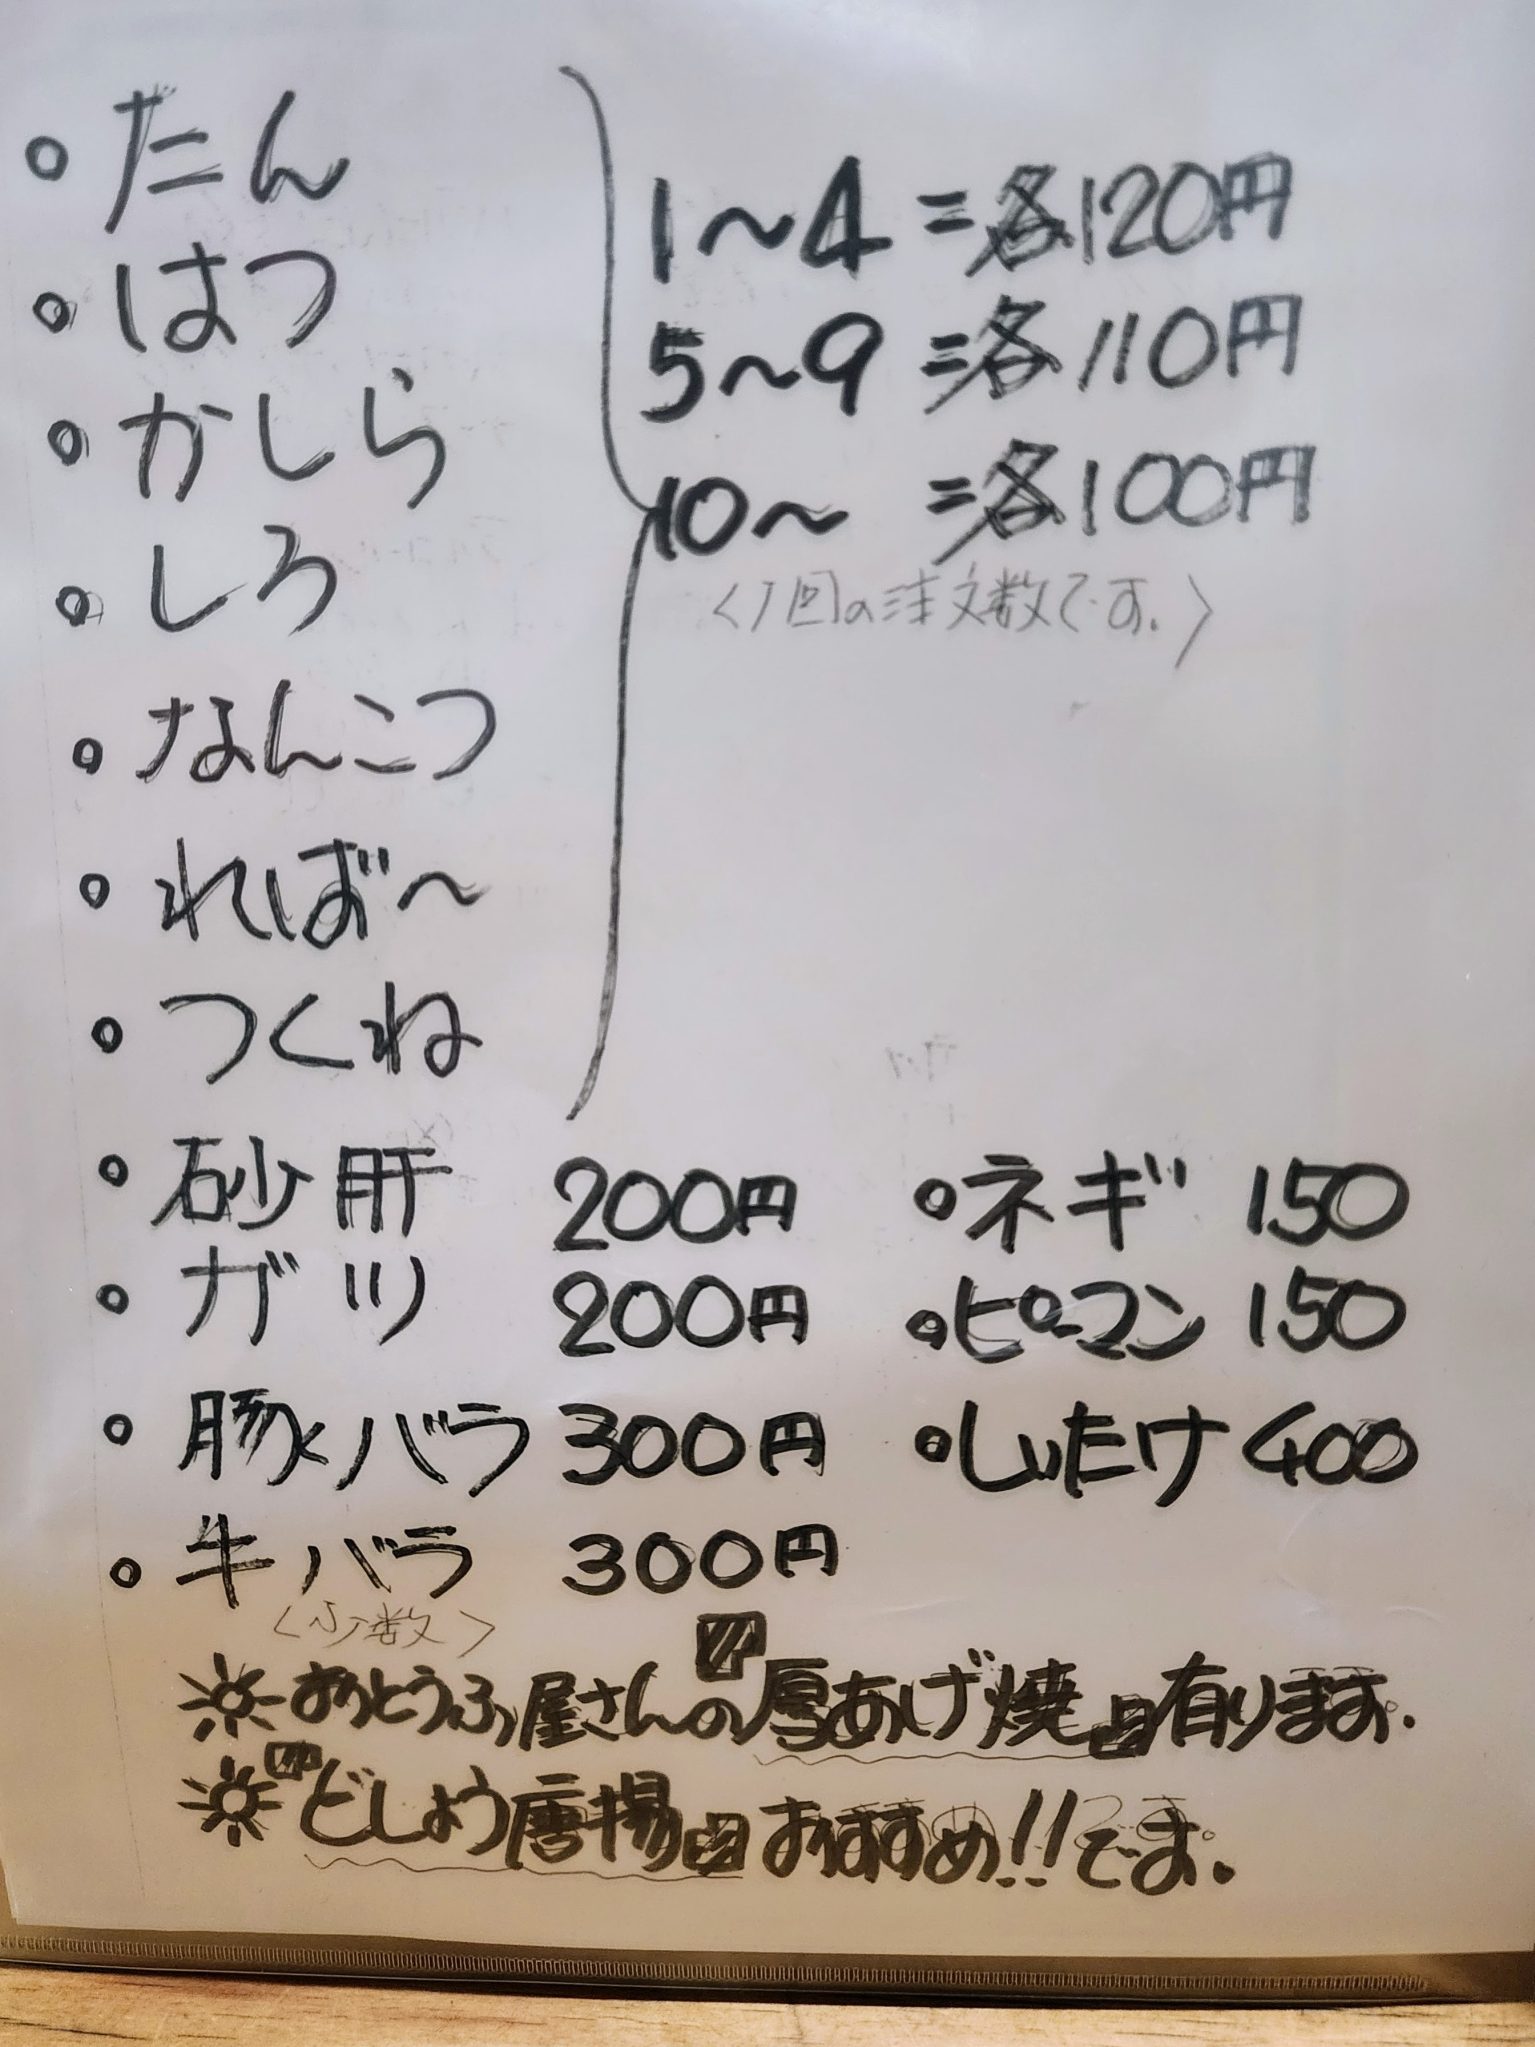 ・たん
・はつ
・かしら
・しろ
・なんこつ
・ればー
・つくね
1〜4=各120円
5〜9=各110円
10〜=各100円
〈1回の注文数です。〉
・砂肝 200円
・ガツ 200円
・豚バラ 300円
・牛バラ 300円
〈少数〉
・ネギ 150
・ピーマン 150
・しいたけ 400
☀おとうふ屋さんの「厚あげ焼」有ります。
☀「どじょう唐揚」おすすめ!!です。